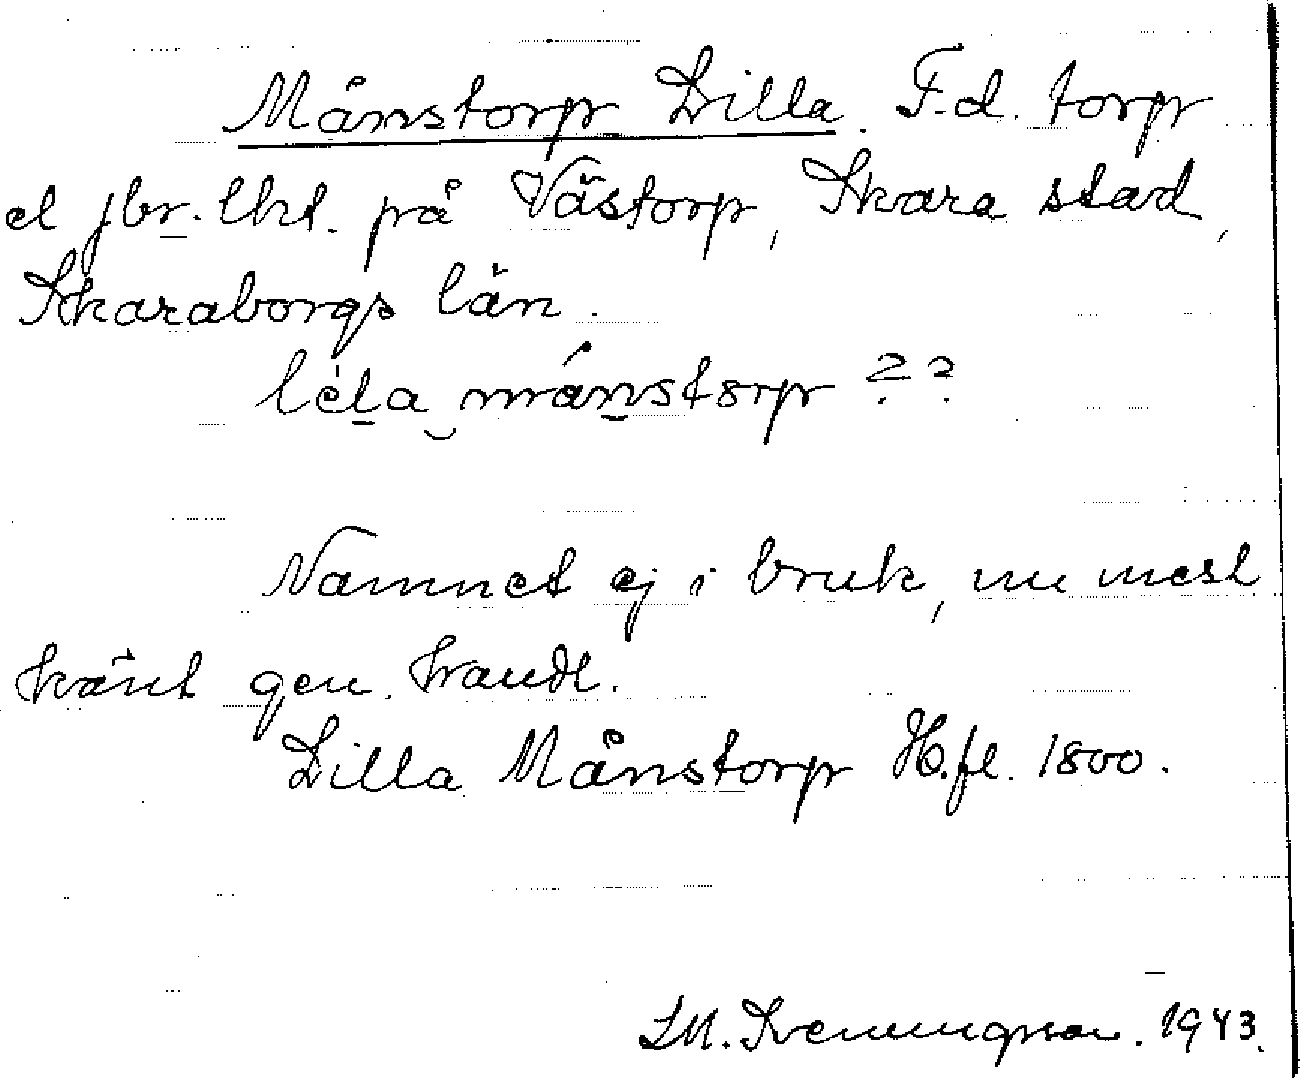 Månstorp Lilla. F.d. torp
el jbr. lht. på Västorp, Skara stad,
Skaraborgs län.
lèla månstorp ??
Namnet ej i bruk, nu mest
känt gen. handl.
Lilla Månstorp Hfl. 1800.
1943.